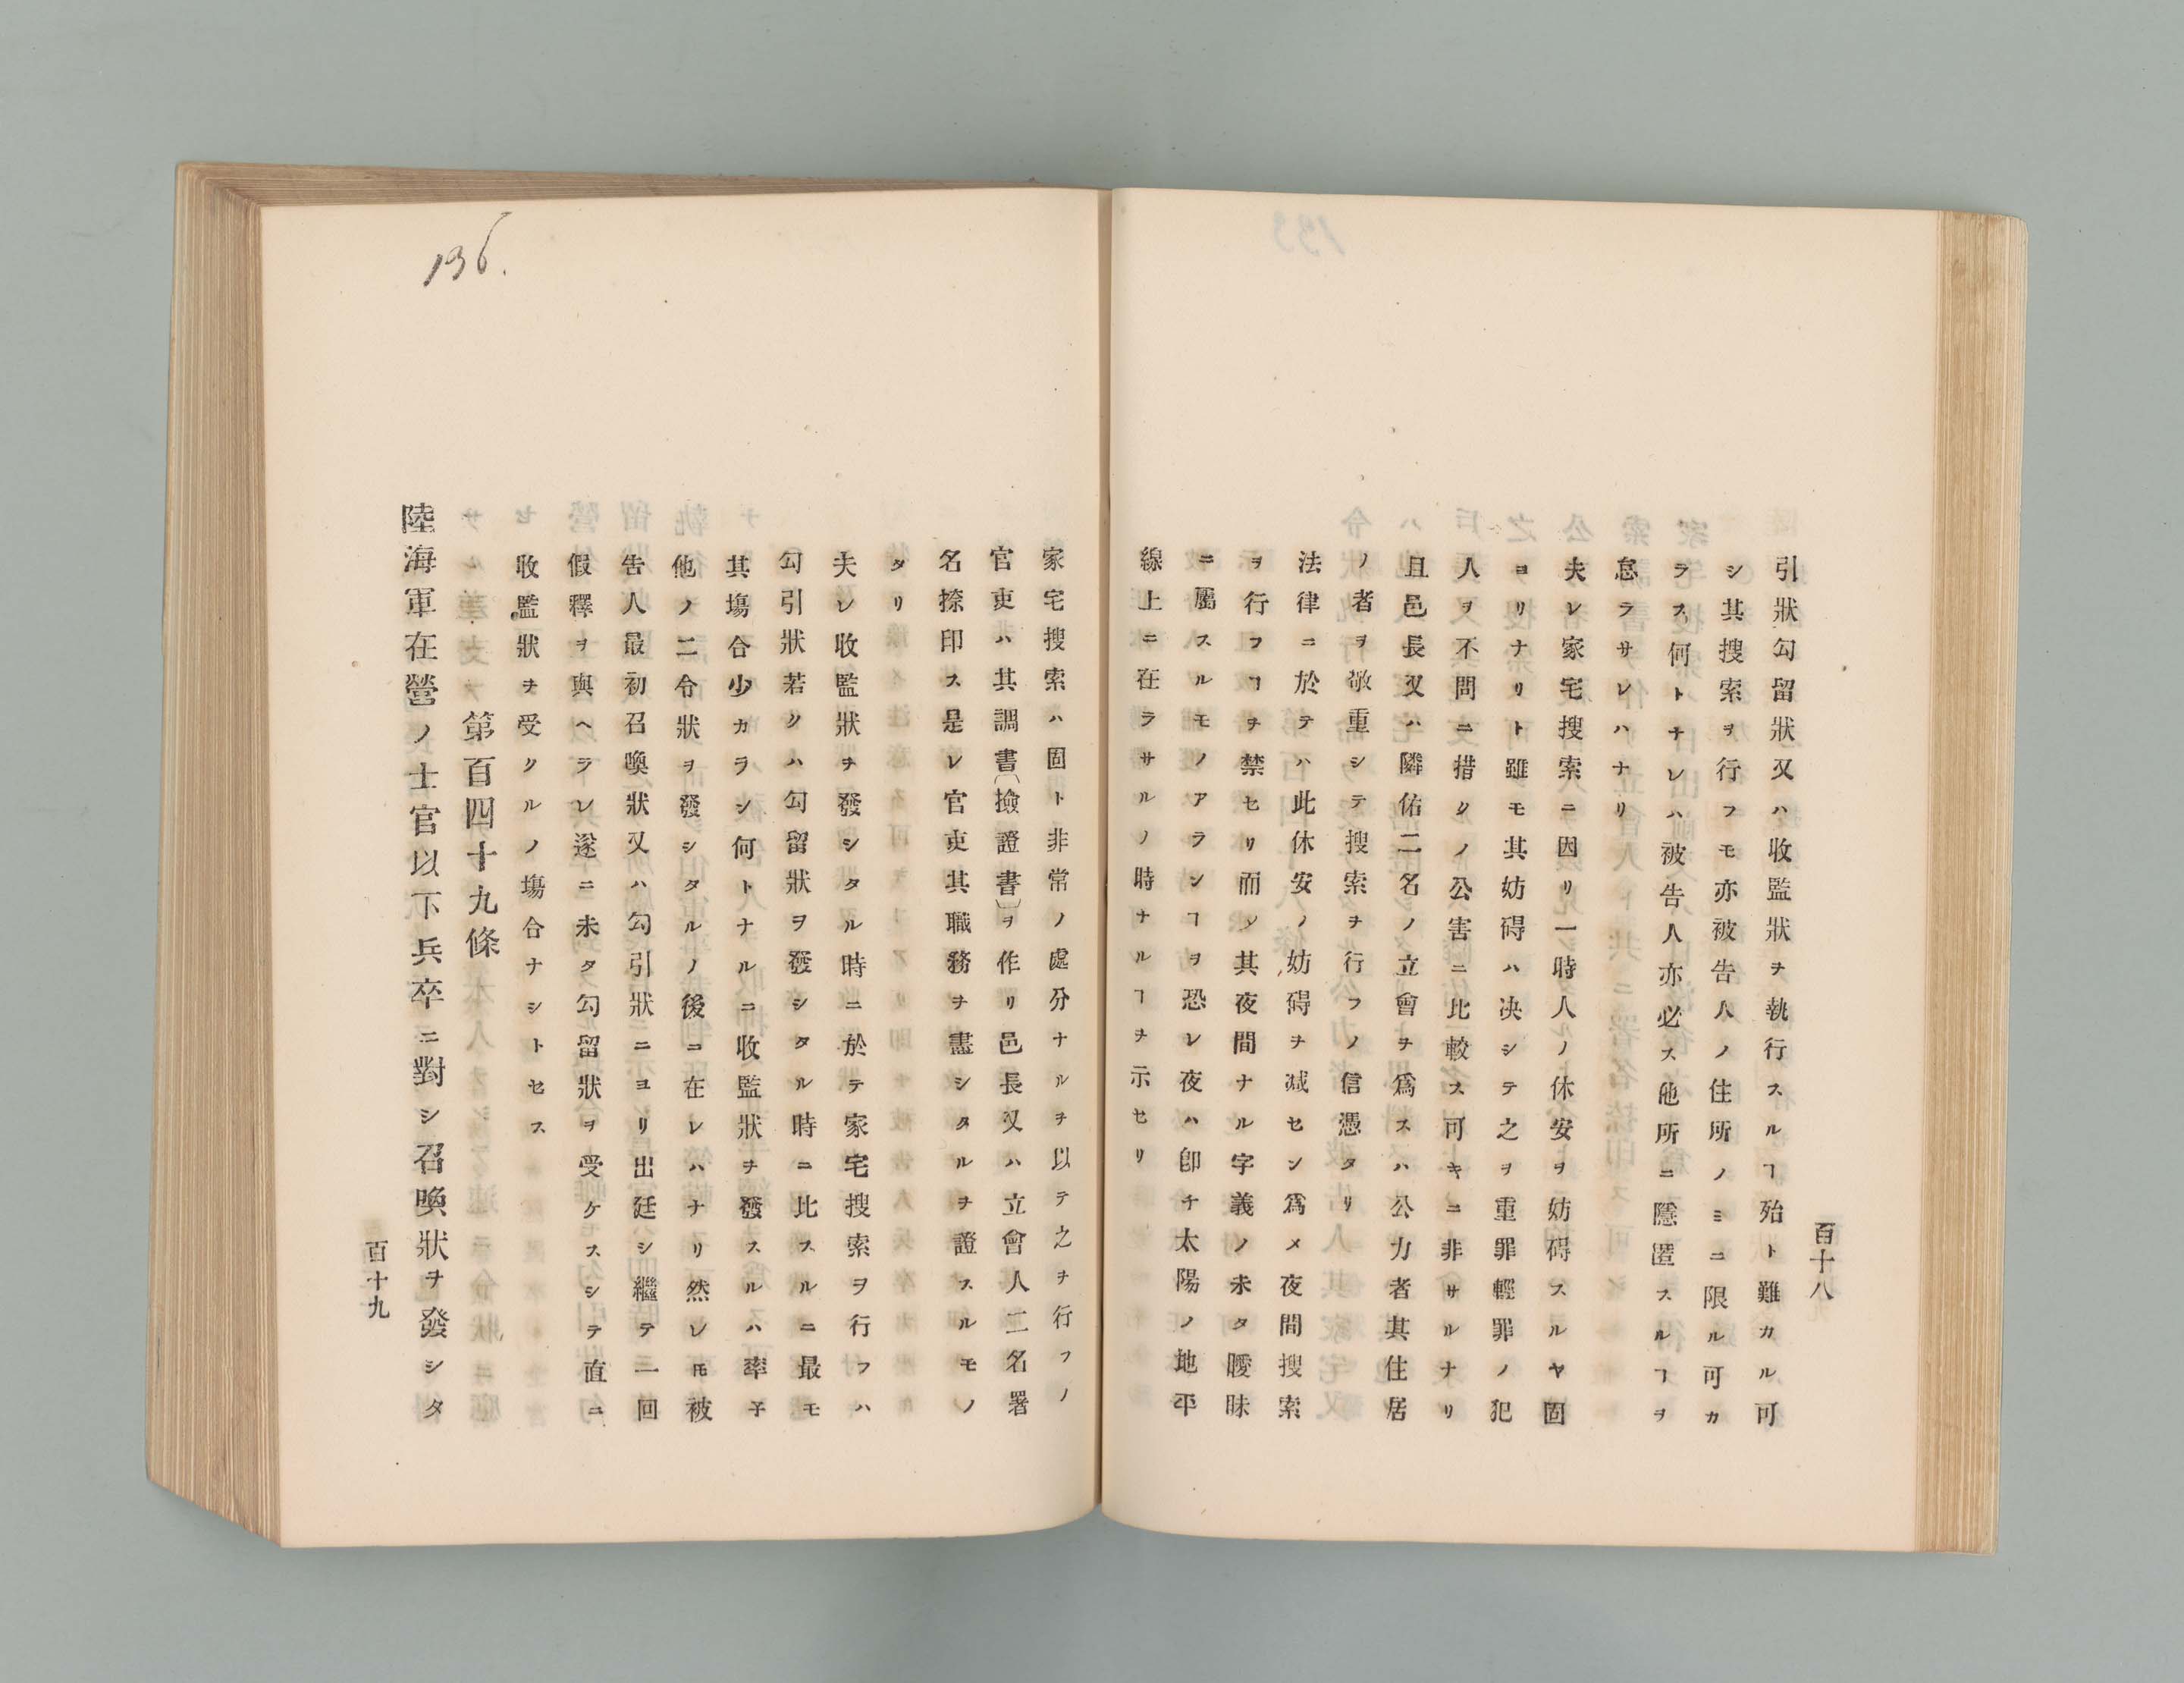 百十八
引狀勾留狀又ハ收監狀ヲ執行スルヿ殆ト難カル可
シ其搜索ヲ行フモ亦被告人ノ住所ノミニ限ル可カ
ラス何トナレハ被告人亦必ス他所ニ隱匿スルヿヲ
怠ラサレハナリ
夫レ家宅搜索ニ因リ一時人ノ休安ヲ妨碍スルヤ固
ヨリナリト雖モ其妨碍ハ决シテ之ヲ重罪輕罪ノ犯
人ヲ不問ニ措クノ公害ニ比較ス可キニ非サルナリ
且邑長又ハ隣佑二名ノ立會ヲ爲スハ公力者其住居
ノ者ヲ敬重シテ搜索ヲ行フノ信憑タリ
法律ニ於テハ此休安ノ妨碍ヲ减セン爲メ夜間搜索
ヲ行フヿヲ禁セリ而シ其夜間ナル字義ノ未タ曖昧
ニ屬スルモノアランヿヲ恐レ夜ハ卽チ太陽ノ地平
線上ニ在ラサルノ時ナルヿヲ示セリ
家宅搜索ハ固ト非常ノ處分ナルヲ以テ之ヲ行フノ
官吏ハ其調書〔撿證書〕ヲ作リ邑長又ハ立會人二名署
名捺印ス是レ官吏其職務ヲ盡シタルヲ證スルモノ
タリ
夫レ收監狀ヲ發シタル時ニ於テ家宅搜索ヲ行フハ
勾引狀若クハ勾留狀ヲ發シタル時ニ比スルニ最モ
其塲合少カラン何トナルニ收監狀ヲ發スルハ率子
他ノ二令狀ヲ發シタルノ後ニ在レハナリ然レ𪜈被
告人最初召喚狀又ハ勾引狀ニヨリ出廷シ繼テ一回
假釋ヲ與ヘラレ遂ニ未タ勾留狀ヲ受ケスシテ直ニ
收監狀ヲ受クルノ塲合ナシトセス
第百四十九條
陸海軍在營ノ士官以下兵卒ニ對シ召喚狀ヲ發シタ
百十九
136.